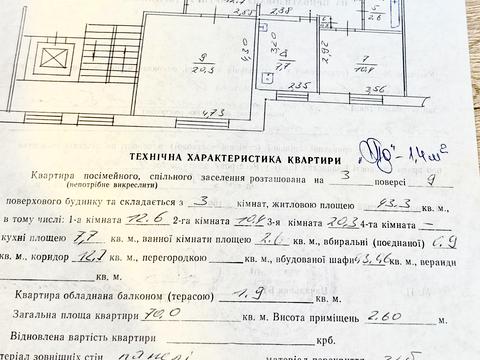 12.7
2,85
2,38
5
2.6
9
20,3
4,30
3,20
8
7,7
2,92
7
10,4
4,73
2,35
3,56
- 1,4 м²
ТЕХНІЧНА ХАРАКТЕРИСТИКА КВАРТИРИ
Квартира посімейного, спільного заселення розташована на 3 поверсі 9
(непотрібне викреслити)
поверхового будинку та складається з 3 кімнат, житловою площею 43.3 кв. м.,
в тому числі: 1-а кімната 12.6 2-га кімната 10,4 3-я кімната 20,3 4-та кімната —
кухні площею 7,7 кв. м., ванної кімнати площею 2.6 кв. м., вбиральні (поєднаної)
кв. м., коридор 12,7 кв. м., перегородкою кв. м., вбудованої шафи кв. м., веранди
кв. м.
Квартира обладнана балконом (терасою) 1.9 кв. м.
Загальна площа квартири 70,0 кв. м. Висота приміщень 2.60 м.
Відновлена вартість квартири крб.
теріал зовнішніх стін панелі матеріал перекриття